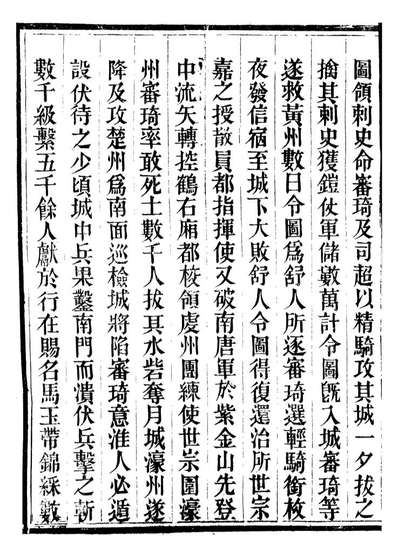 圖領刺史命審琦及司超以精騎攻其城一夕拔之
擒其刺史獲鎧仗軍儲數萬計令圖旣入城審琦等
遂救黃州數日令圖爲舒人所逐審琦選輕騎銜枚
夜發信宿至城下大敗舒人令圖得復還治所世宗
嘉之授散員都指揮使又破南唐軍於紫金山先登
中流矢轉控鶴右廂都校領虔州團練使世宗圍濠
州審琦率敢死士數千人拔其水砦奪月城濠州遂
降及攻楚州爲南面巡檢城將陷審琦意淮人必遁
設伏待之少頃城中兵果鑿南門而潰伏兵擊之斬
數千級繫五千餘人獻於行在賜名馬玉帶錦綵數